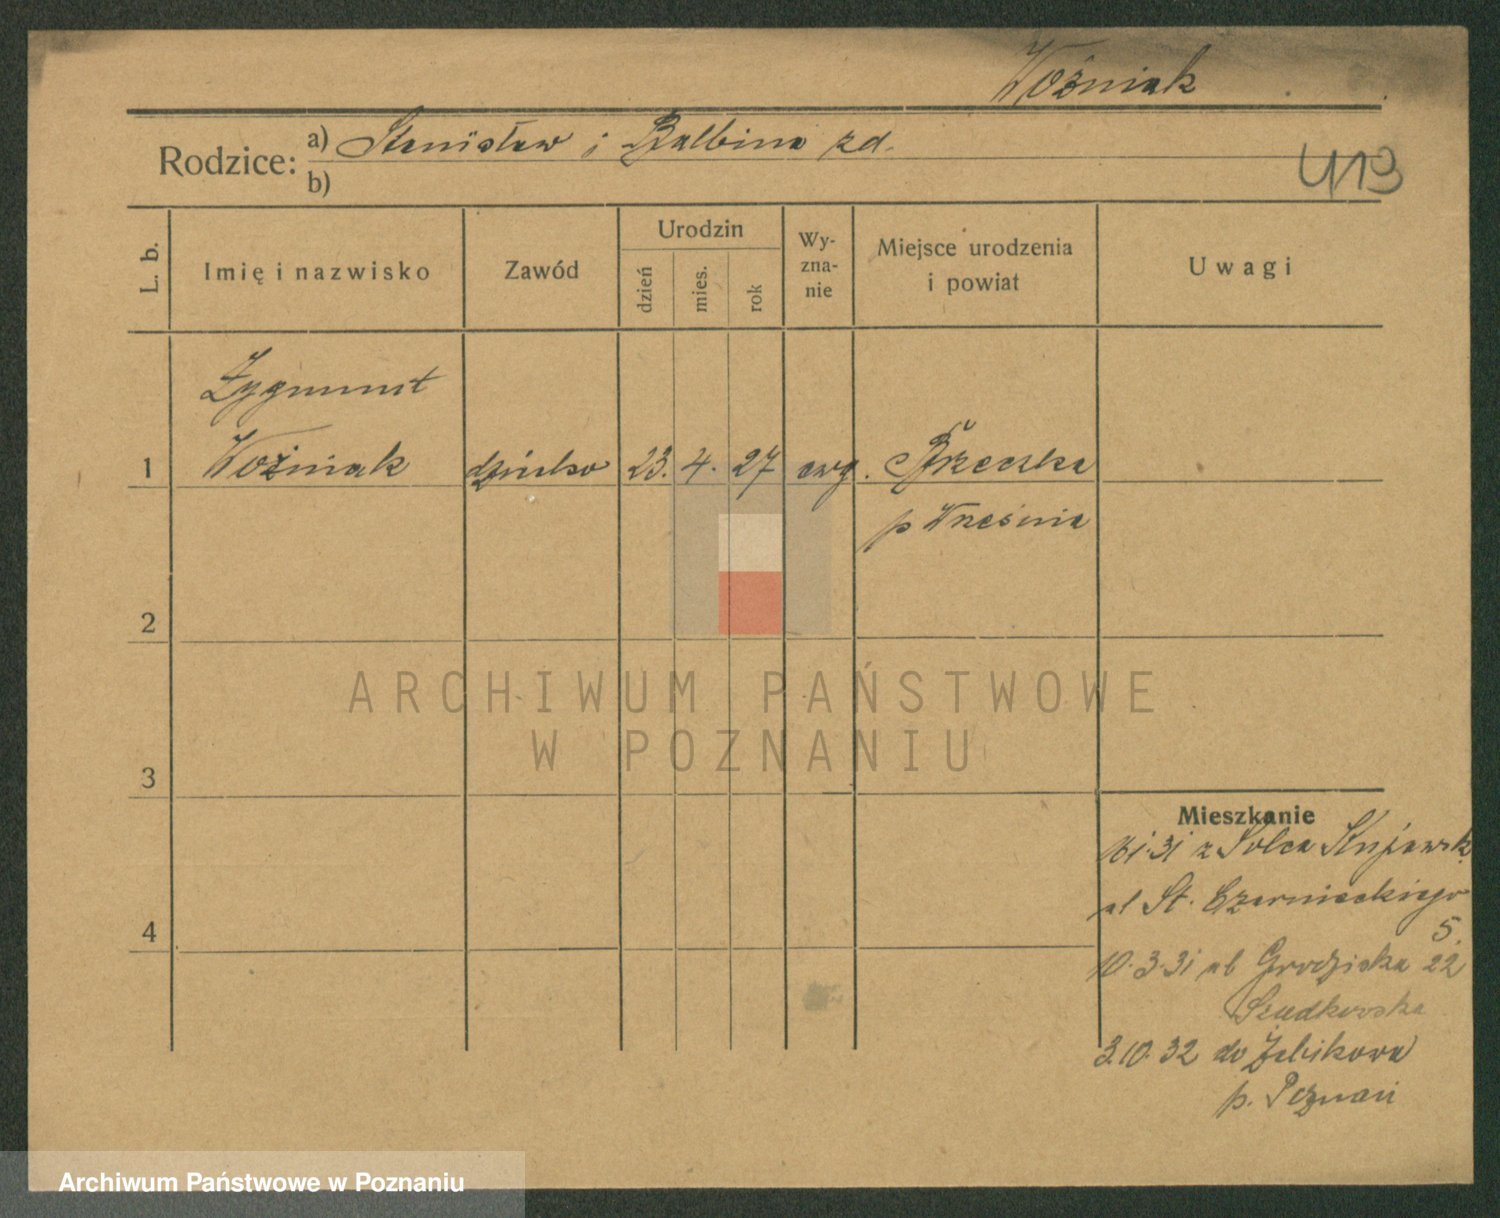 Woźniak
Rodzice: a) Stanisław i Balbina zd.
b)
413
L. b.
Imię i nazwisko
Zawód
Urodzin
dzień
mies.
rok
Wy-
zna-
nie
Miejsce urodzenia
i powiat
Uwagi
Zygmunt
1 Woźniak dziecko 23. 4. 27 ewg.
p Września
2
3
4
ARCHIWUM PAŃSTWOWE
W POZNANIU
Mieszkanie
z Solca Kujawsk.
ul St. Czarnieckiego
5.
10.3.31 ul Grodziska 22
3.10.32 do Żabikowa
p. Poznań
Archiwum Państwowe w Poznaniu